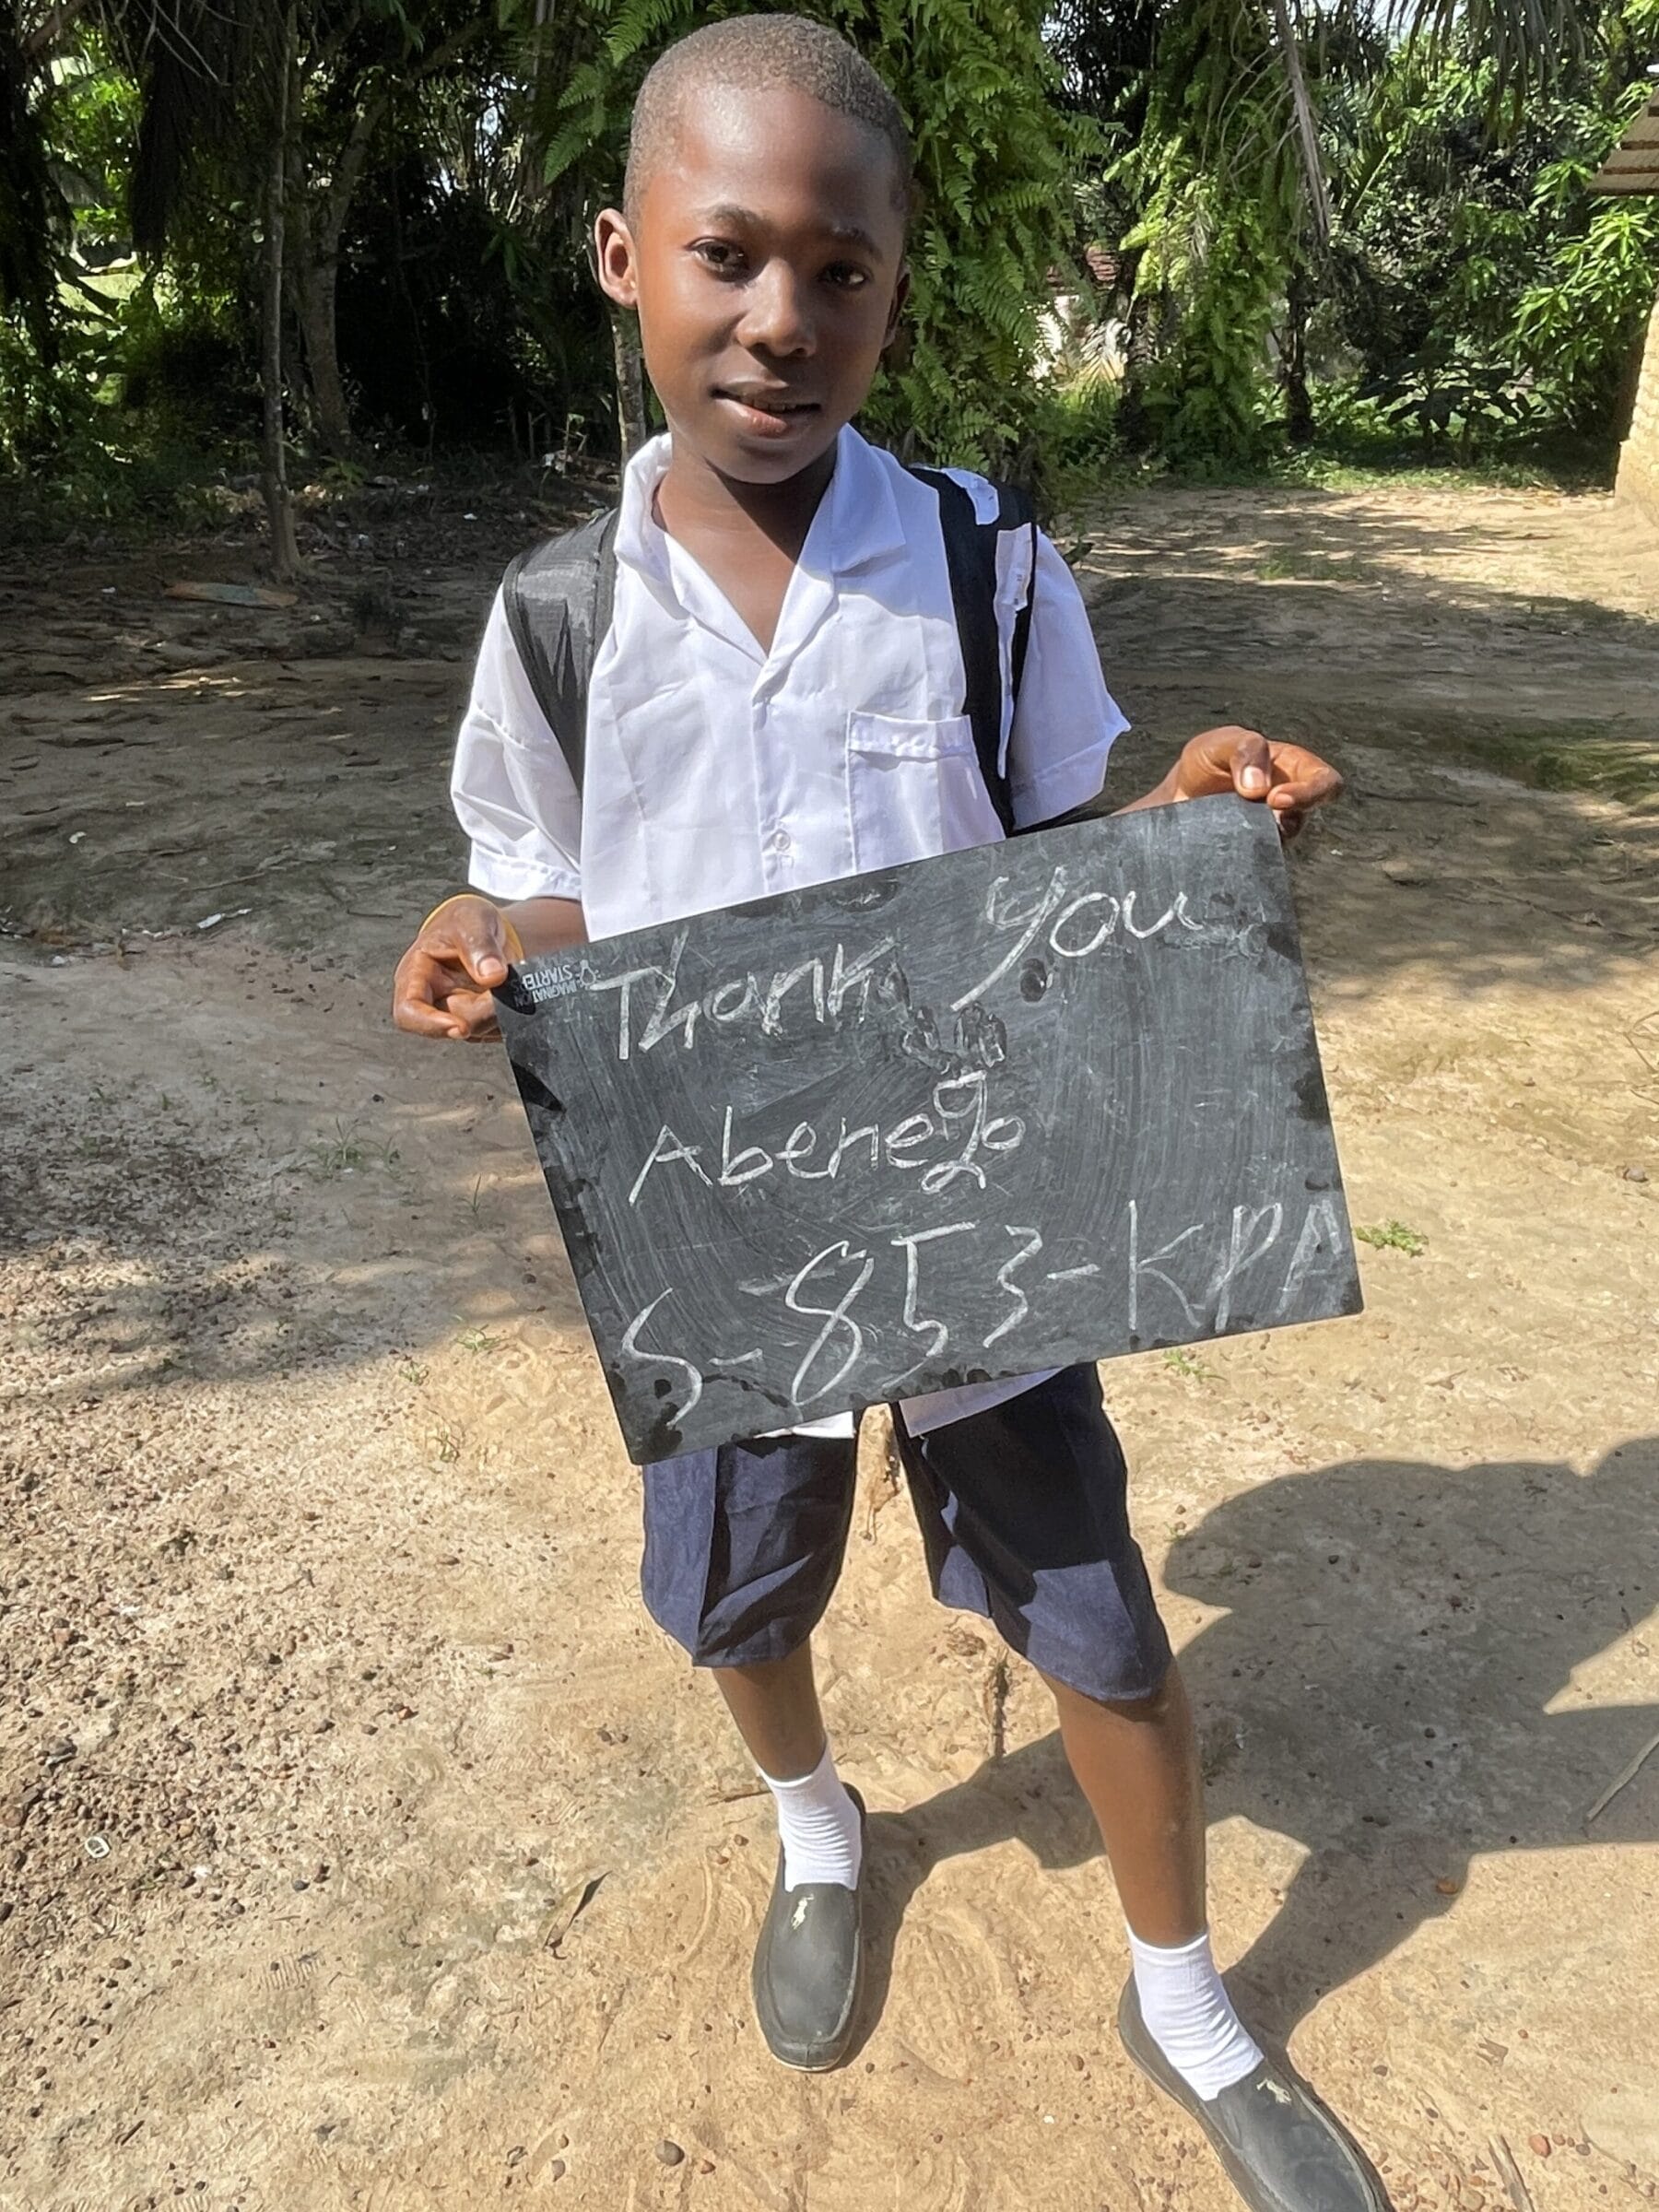 Thank you
Abenego
S-853-KPA
IMAGINATION
STARTERS